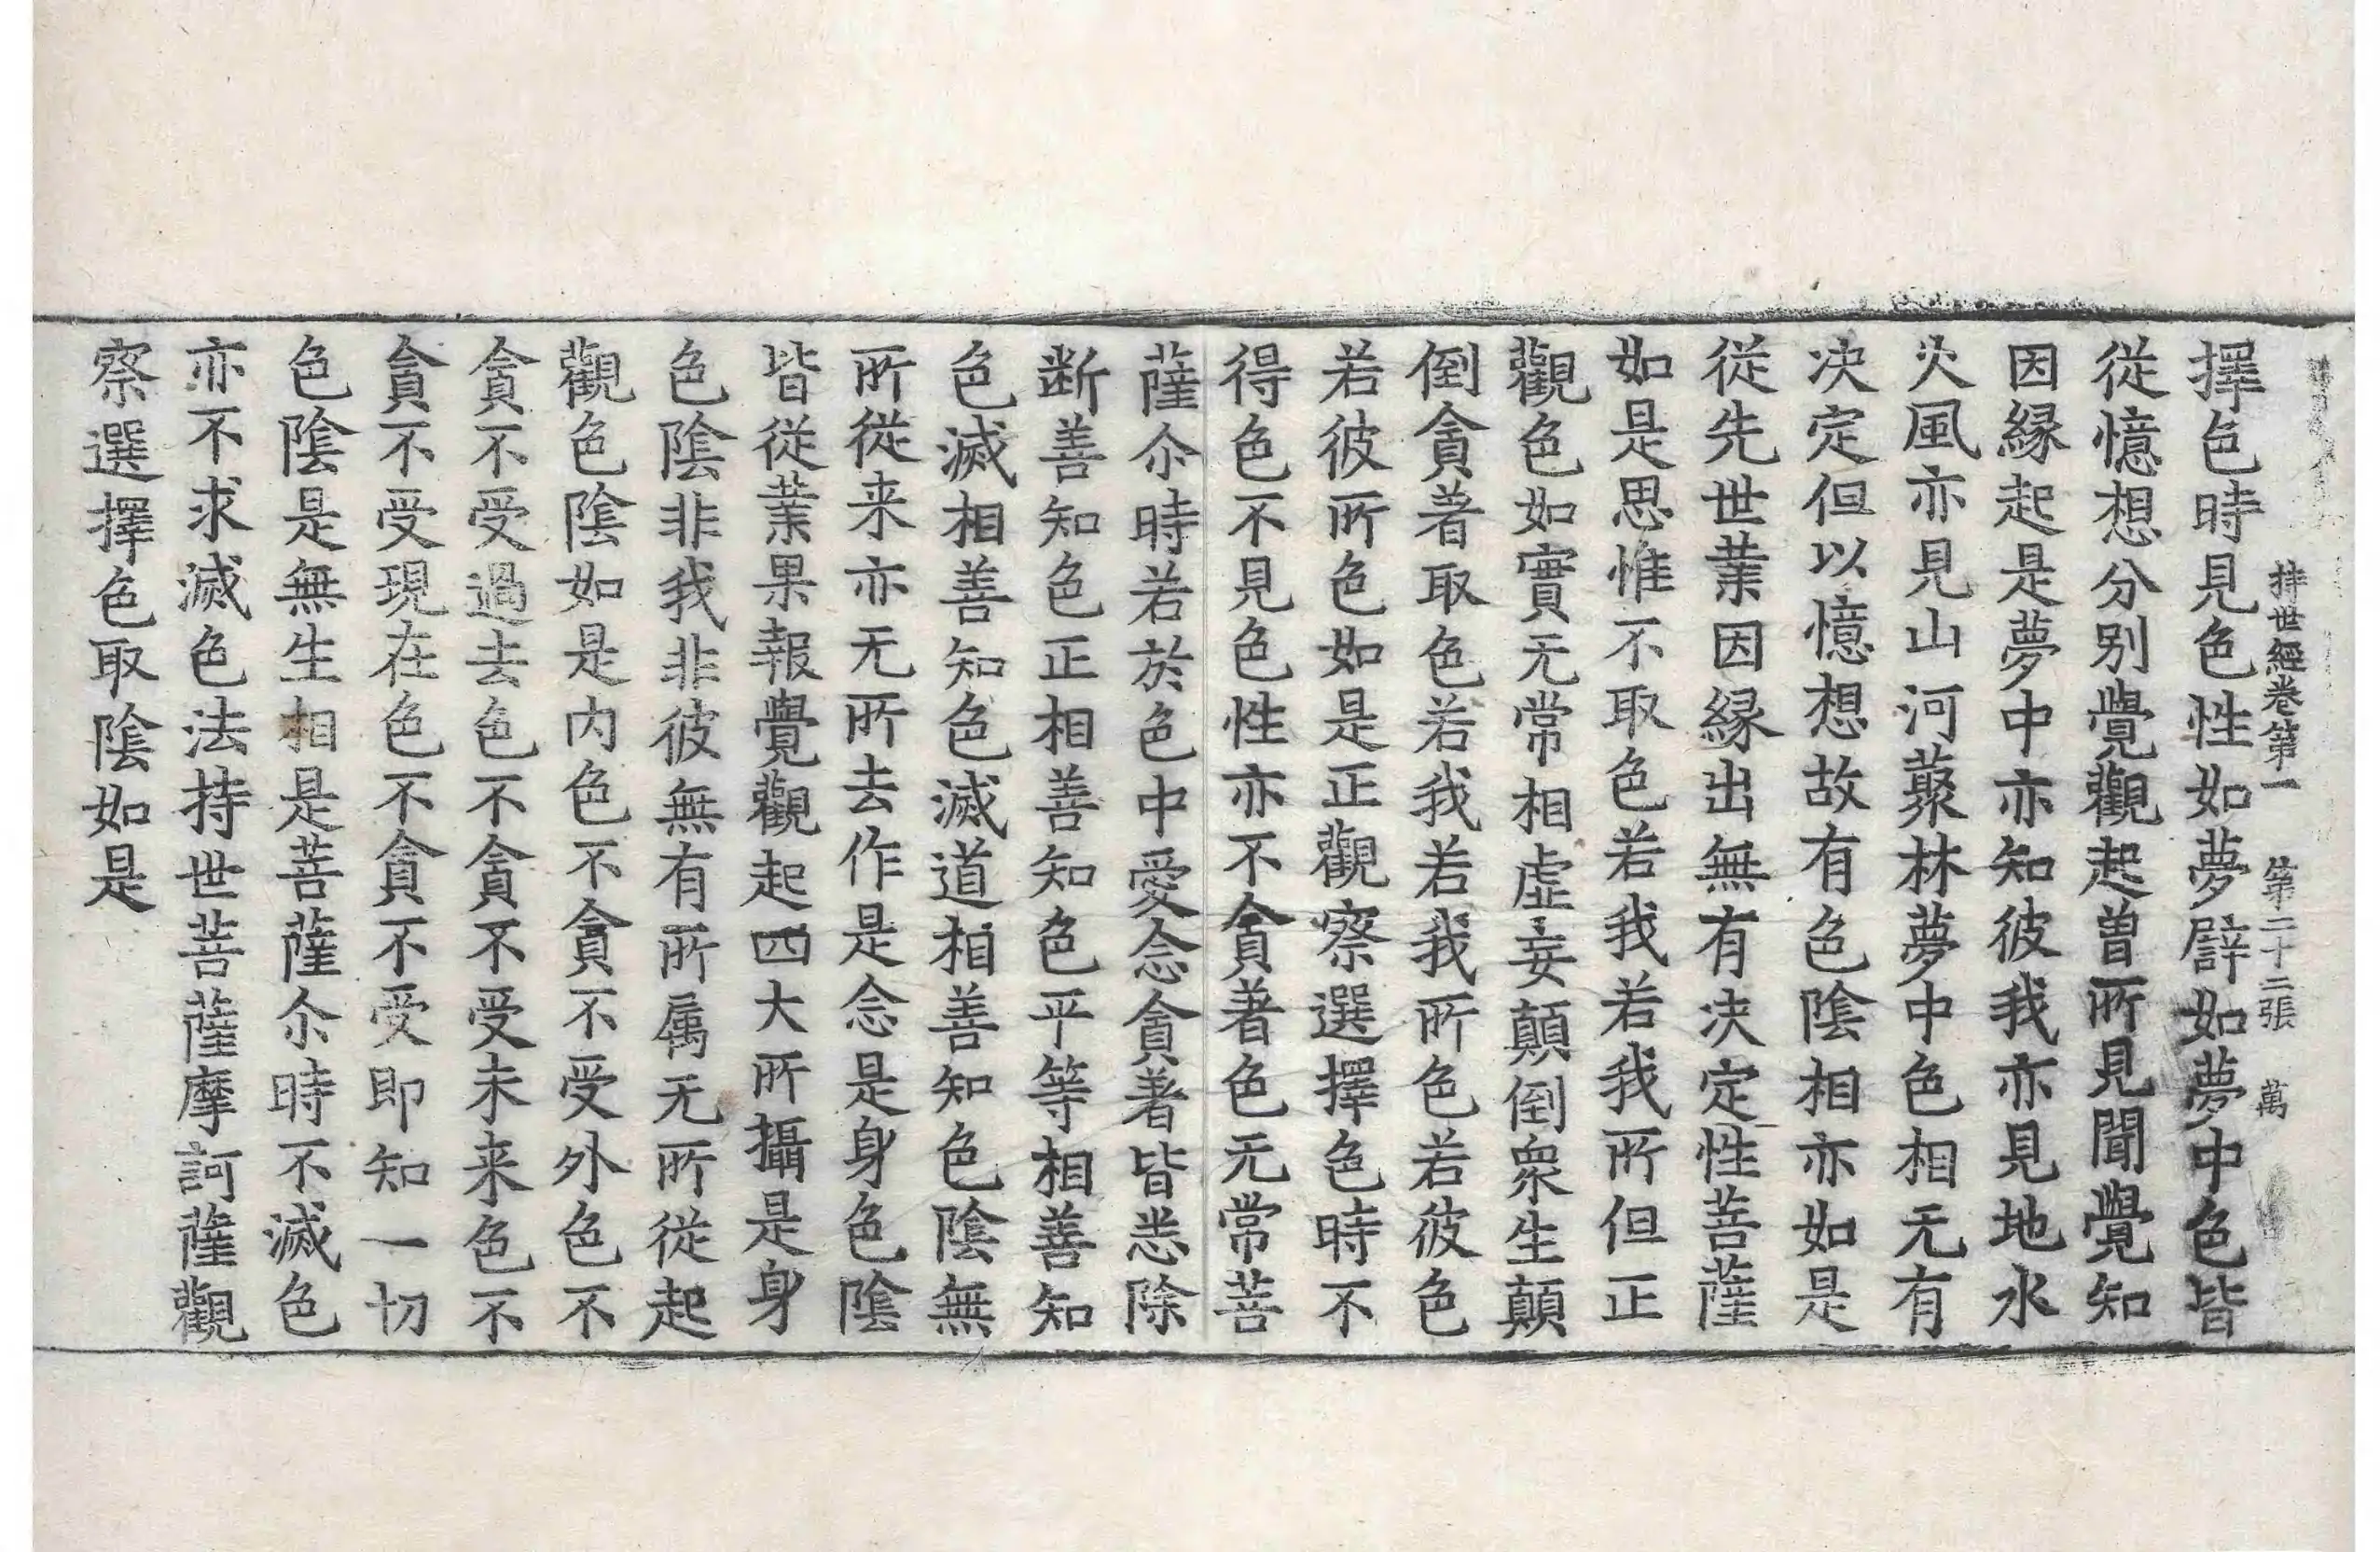 持世經卷第一 第二十二張 萬
擇色時見色性如夢譬如夢中色皆
從憶想分別覺觀起曽所見聞覺知
因縁起是夢中亦知彼我亦見地水
火風亦見山河藂林夢中色相无有
決定但以憶想故有色陰相亦如是
從先世業因縁出無有決定性菩薩
如是思惟不取色若我若我所但正
觀色如實无常相虛妄顛倒衆生顛
倒貪著取色若我若我所色若彼色
若彼所色如是正觀察選擇色時不
得色不見色性亦不貪著色无常菩
薩尒時若於色中愛念貪著皆悉除
断善知色正相善知色平等相善知
色滅相善知色滅道相善知色陰無
所從来亦无所去作是念是身色陰
皆從業果報覺觀起四大所攝是身
色陰非我非彼無有所属无所從起
觀色陰如是内色不貪不受外色不
貪不受過去色不貪不受未来色不
貪不受現在色不貪不受即知一切
色陰是無生相是菩薩尒時不滅色
亦不求滅色法持世菩薩摩訶薩觀
察選擇色取陰如是